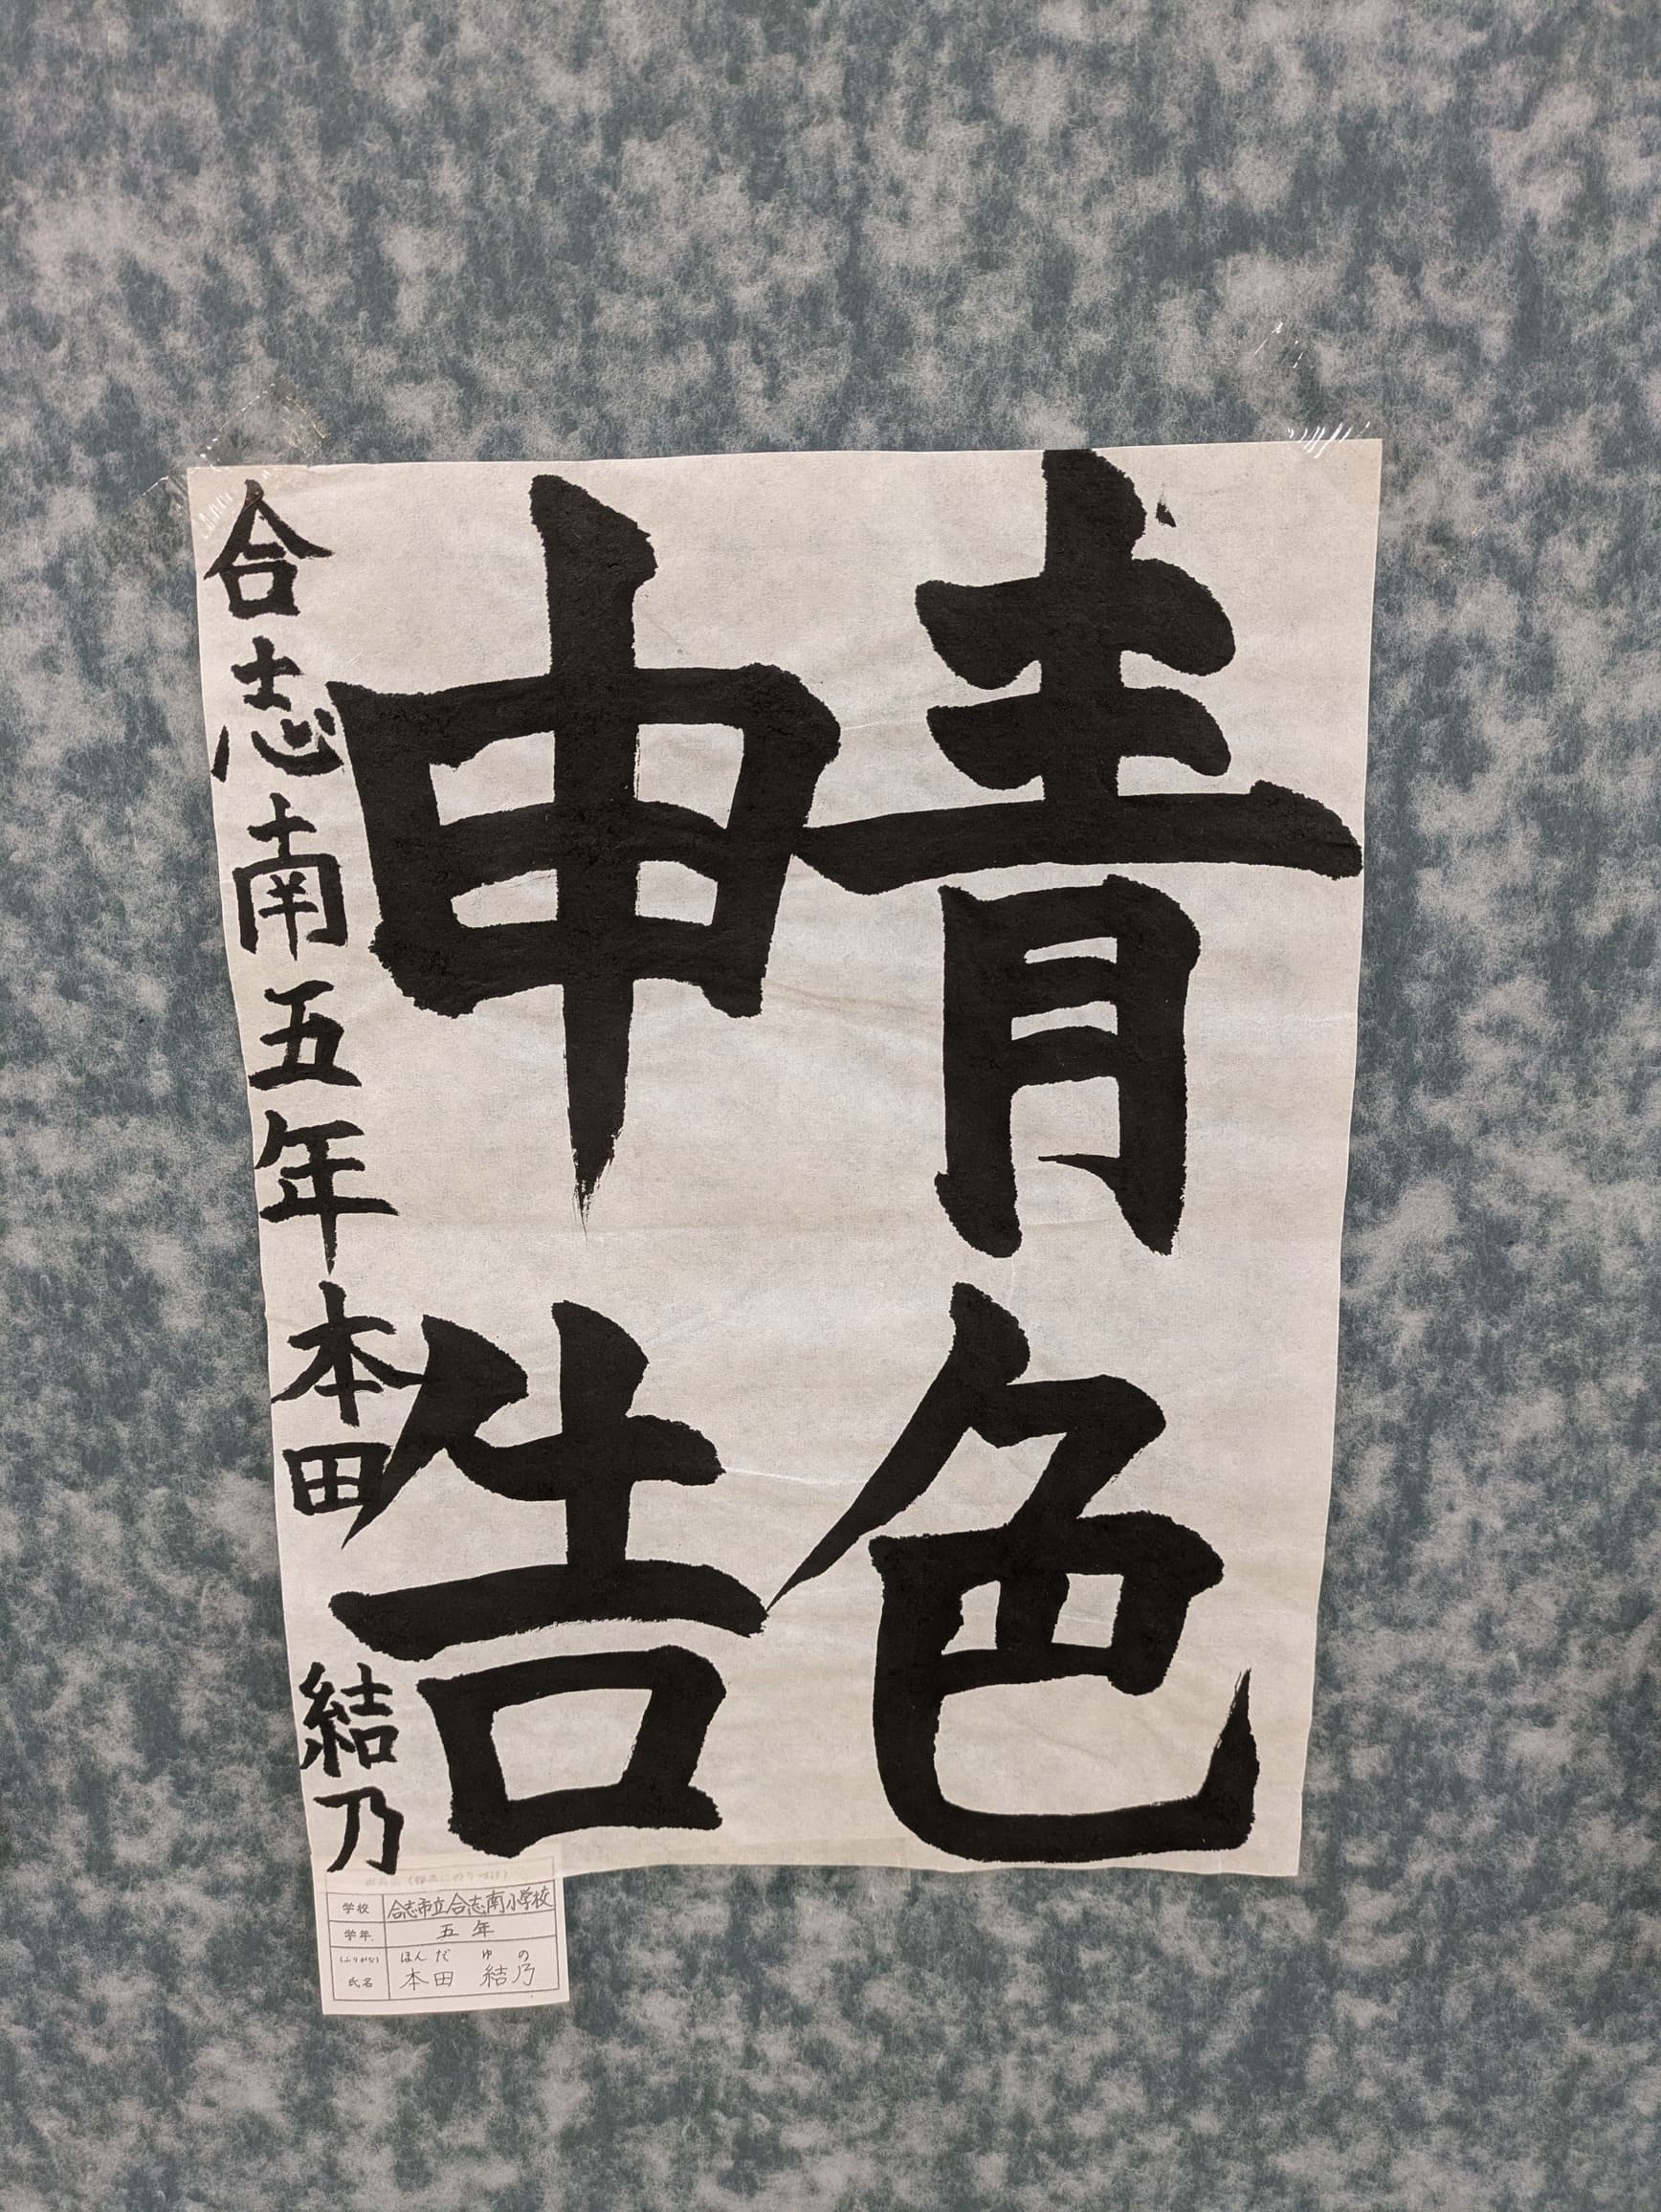 青色
申告
合志南五年本田 結乃
学校 合志市立合志南小学校
学年 五年
(ふりがな) ほんだ ゆの
氏名 本田 結乃